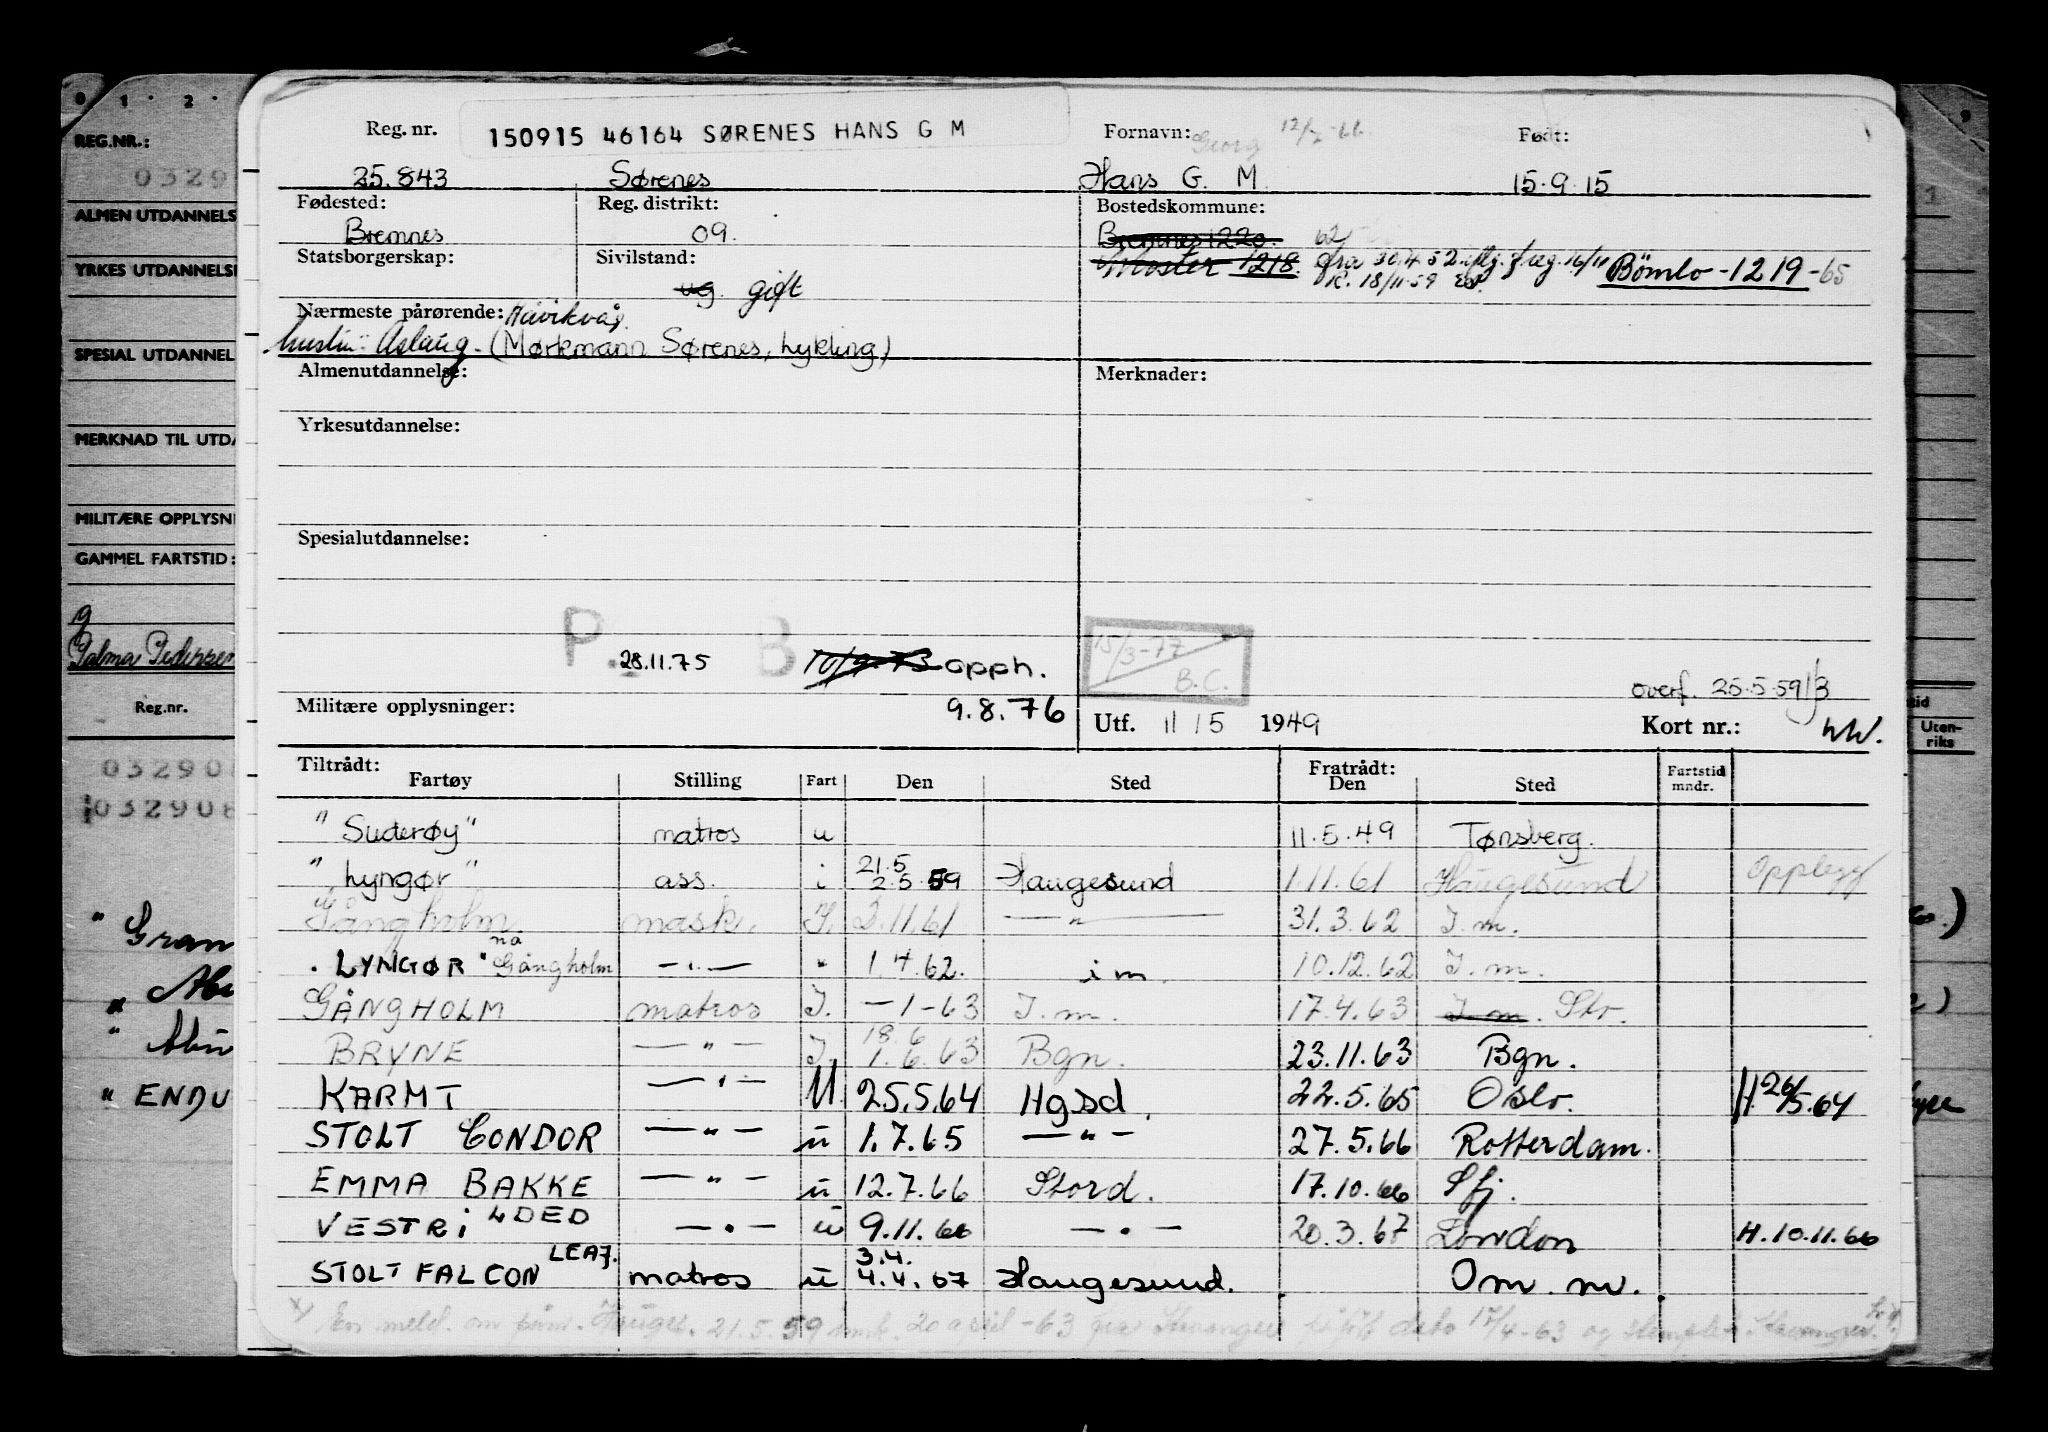 0 1 . 2 .
REG.NR.:
0329
ALMEN UTDANNELS
YRKES UTDANNELS
SPESIAL UTDANNEL
MERKNAD TIL UTDA
MILITÆRE OPPLYSN
GAMMEL FARTSTID:
g
Palma Pedersen
Reg.nr.
03290
032908
" Gran
" ENDU
Uten-
riks
Reg. nr. 150915 46164 SØRENES HANS G M Fornavn: Georg 12/7-66. Født:
25.843 Sørenes Hans G. M. 15.9.15
Fødested: Reg. distrikt: Bostedskommune:
Bremnes 09. Bremnes 1220. 62
Statsborgerskap: Sivilstand: Moster 1218. fra 30.4.52 16/11 Bömlo -1219-65
ug. gift K. 18/11-59
Nærmeste pårørende: Håvikvåg.
hustru: Aslaug. (Mørkmann Sørenes, Lykling)
Almenutdannelse: Merknader:
Yrkesutdannelse:
Spesialutdannelse:
P. 28.11.75 B 10/9-73 opph. 15/3-77 B.C.
overf. 25.5.59/3
Militære opplysninger: 9.8.76 Utf. 11/5 1949 Kort nr.:
Tiltrådt: Fratrådt: Fartstid
Fartøy Stilling Fart Den Sted Den Sted mndr.
"Suderøy" matros u 11.5.49 Tønsberg.
21.5
"Lyngør" ass. i 2.5.59 Haugesund 1.11.61 Haugesund Opplegg
Gångholm mask. I. 2.11.61 — " — 31.3.62 I.m.
nå
. LYNGØR " Gångholm — . — " 1.4.62. i m. 10.12.62 I.m.
GÅNGHOLM matros I. —1-63 I.m. 17.4.63 I.m. Stv.
18.6
BRYNE — " — I. 1.6.63 Bgn. 23.11.63 Bgn.
KARMT — " — U 25.5.64 Hgsd. 22.5.65 Oslo. H. 26/5.64
STOLT CONDOR — " — u 1.7.65 — " — 27.5.66 Rotterdam.
EMMA BAKKE — " — u 12.7.66 Stord. 17.10.66 Sfj.
VESTRI LDED — " — u 9.11.66 — " — 20.3.67 London H. 10.11.66
LEAJ. 3.4.
STOLT FALCON matros u 4.4.67 Haugesund. Om. m.
x/ En meld. om påm. Hauges. 21.5.59 20 april -63 fra Stavanger dato 17/4-63 og stemplet Stavanger.